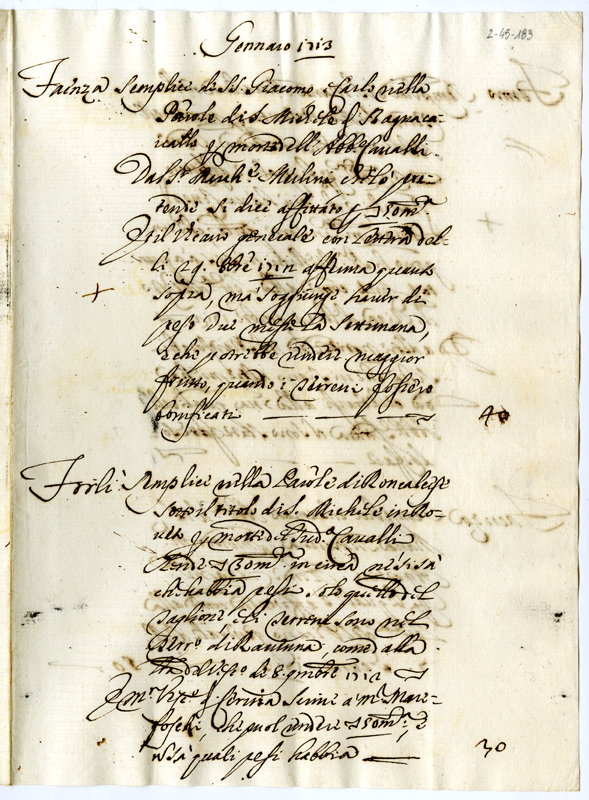 2-45-183
Gennaro 1713
Faenza Semplice di SS. Giacomo e Carlo nella
Par.le di S. Michele di Bagnaca-
vallo p morte dell'Abb.e Cavalli
Dal Sr. Mich.e Merlini che lo pre-
tende si dice affittato
Il Vicario generale con lettera del-
li 29. 8bre 1712 afferma quanto
sopra, ma soggiunge haver di
peso due messe la settimana,
e che potrebbe rendere maggior
frutto, quando i terreni fossero
bonificati
40
Forlì Semplice nella Par.le di Roncalceste
sotto il titolo di S. Michele in Ro-
p morte del sud.o Cavalli
Rende 30 m.ta in circa, ne si sà
che habbia pesi, solo quello del
Taglione, e i terreni sono nel
Terr.o di Ravenna, come dalla
de 8. 9mbre 1712
che puol rendere 30 m.ta, e
quali pesi habbia
30